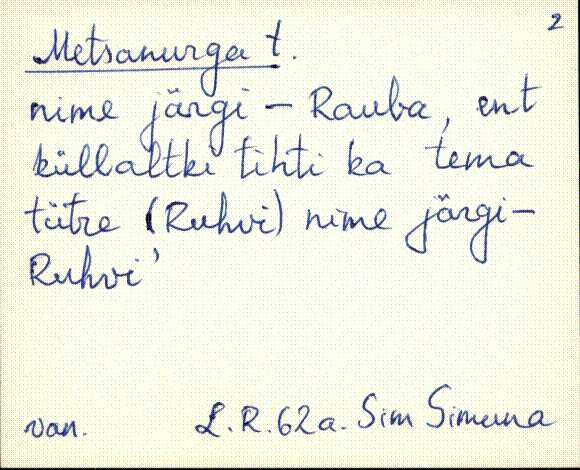 2
Metsanurga t.
nime järgi – Rauba, ent
küllaltki tihti ka tema
tütre (Ruhvi) nime järgi –
Ruhvi'
van. L.R.62a. Sim Simuna